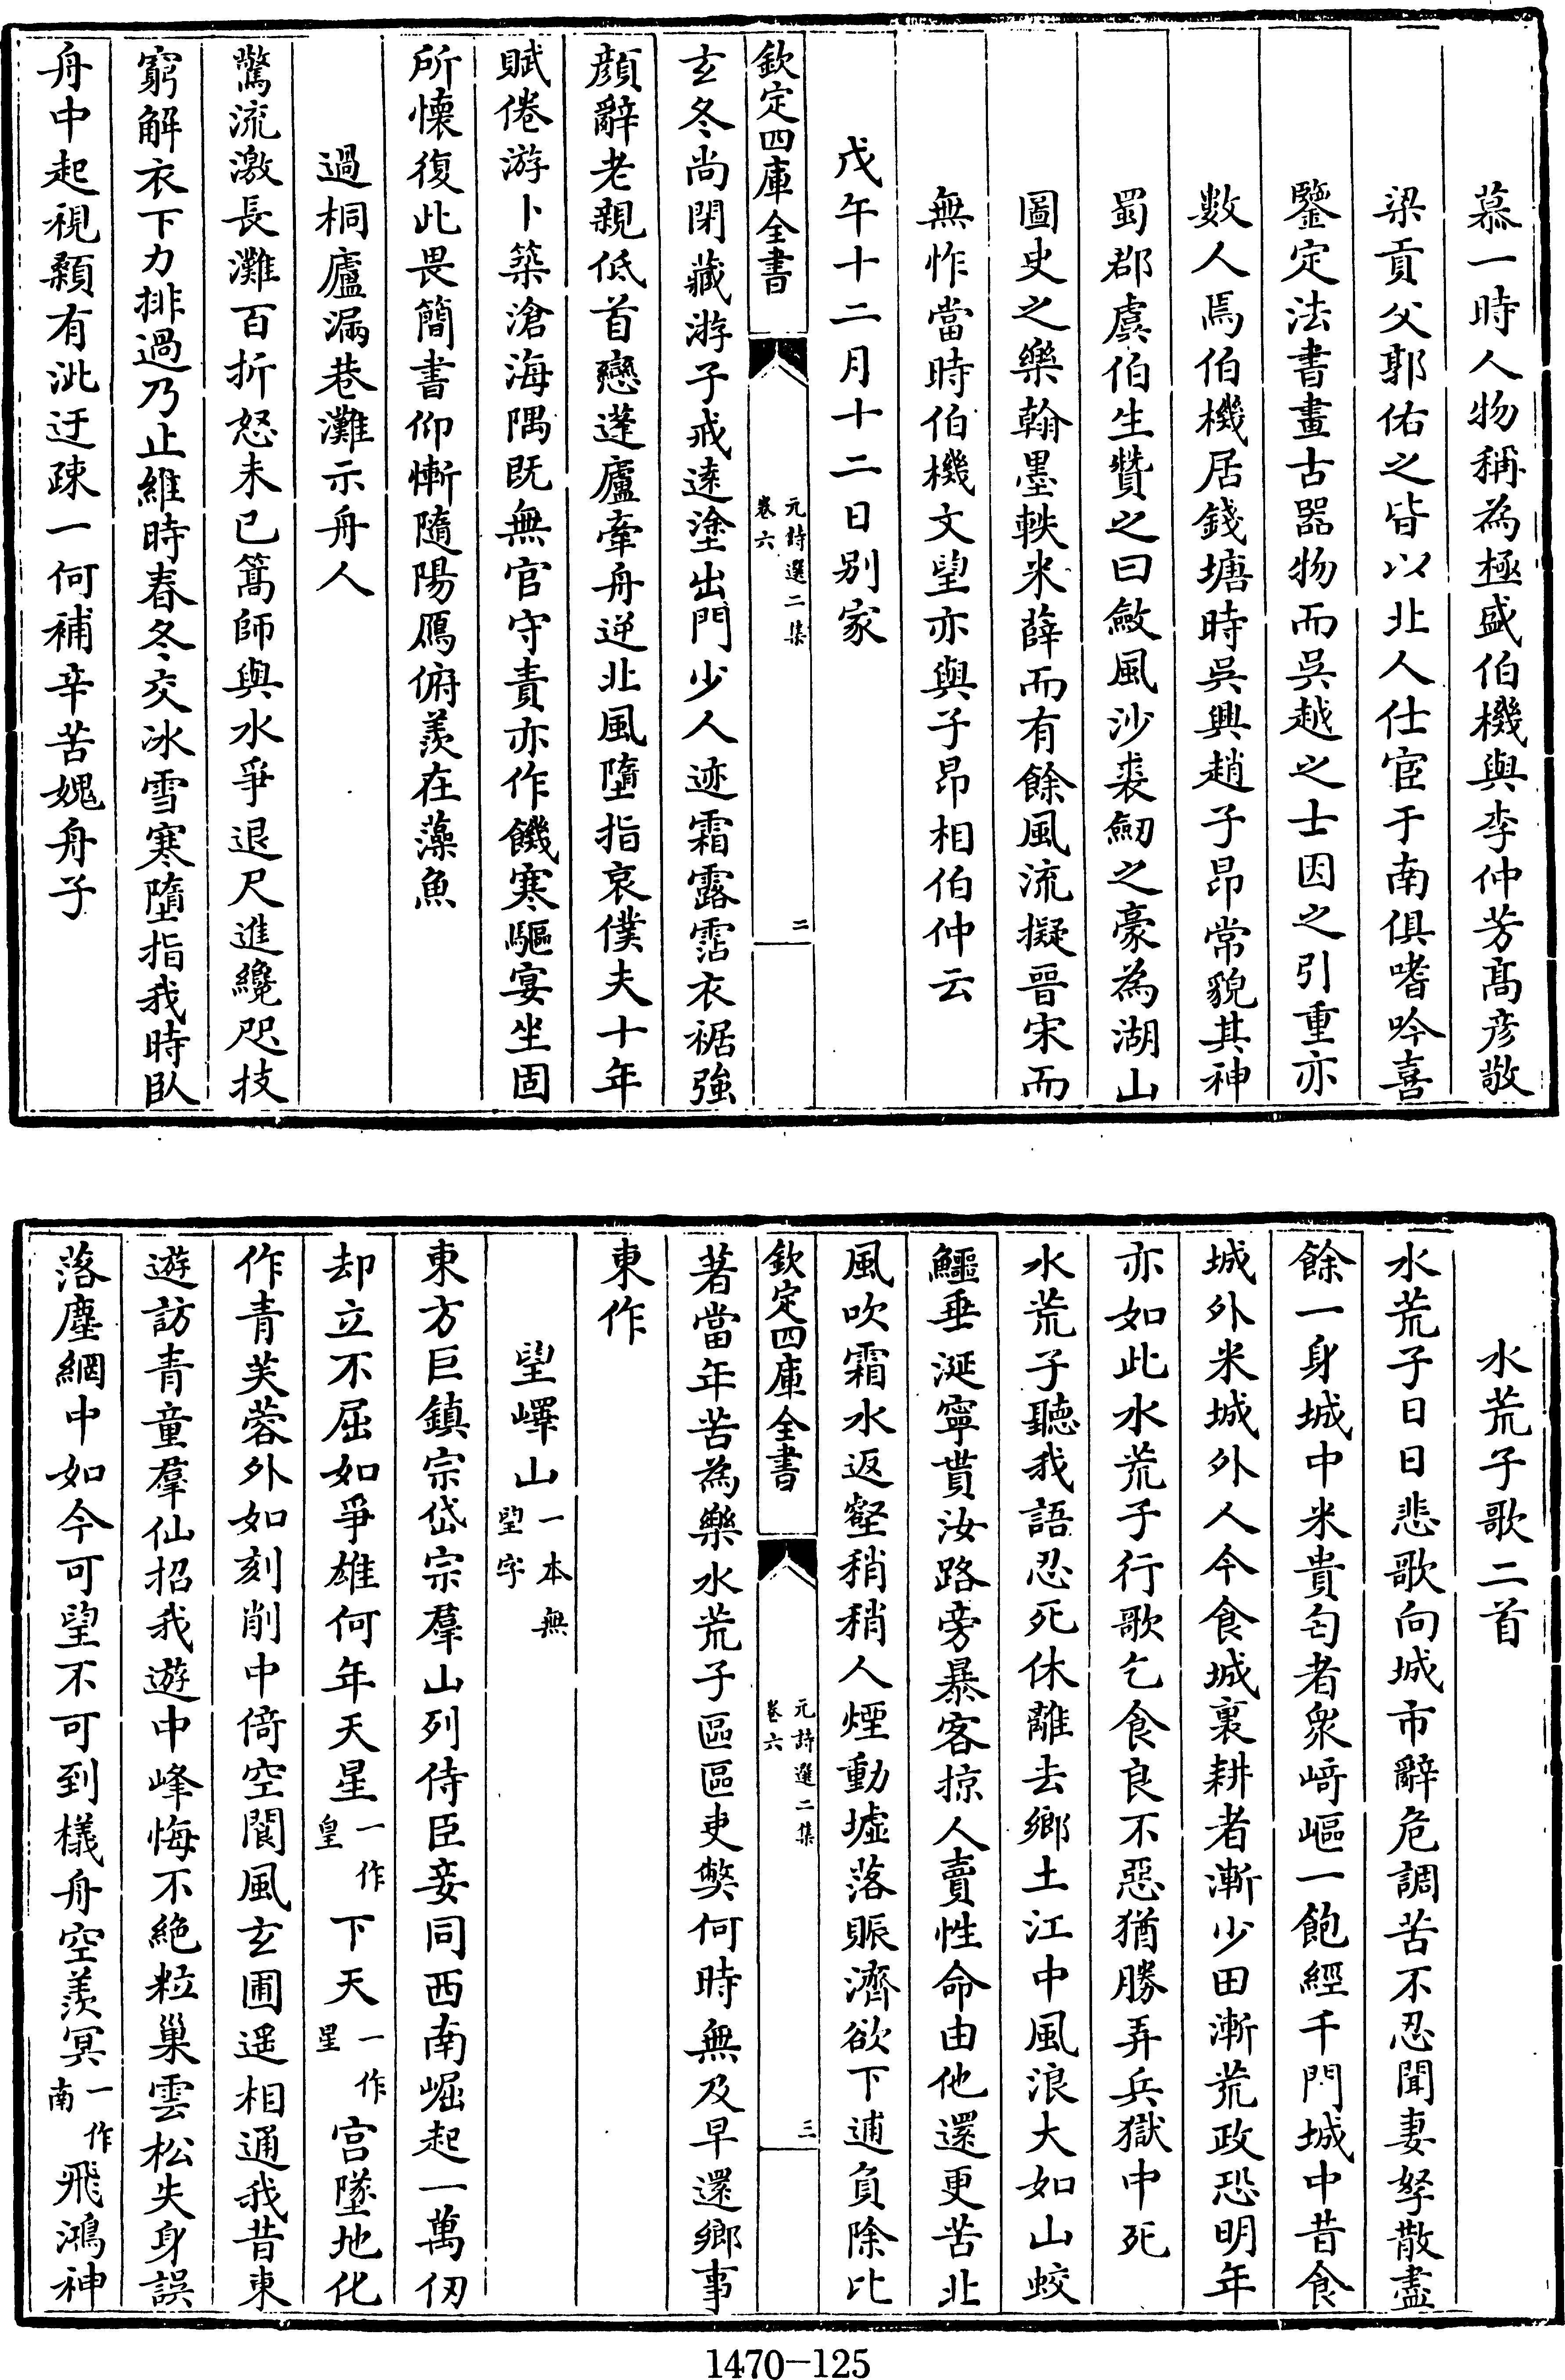 慕一時人物稱為極盛伯機與李仲芳髙彦敬
梁貢父郭佑之皆以北人仕宦于南俱嗜吟喜
鑒定法書畫古器物而吳越之士因之引重亦
數人焉伯機居錢塘時吳興趙子昂常貌其神
蜀郡虞伯生贊之曰斂風沙裘劒之豪為湖山
圖史之樂翰墨軼米薛而有餘風流擬晉宋而
無怍當時伯機文望亦與子昂相伯仲云
戊午十二月十二日别家
欽定四庫全書
元詩選二集
卷六
二
玄冬尚閉藏游子戒逺塗出門少人迹霜露霑衣裾強
顔辭老親低首戀蓬廬牽舟逆北風墮指哀僕夫十年
賦倦游卜築滄海隅既無官守責亦作饑寒驅宴坐固
所懐復此畏簡書仰慚隨陽鴈俯羡在藻魚
過桐廬漏巷灘示舟人
驚流激長灘百折怒未已篙師與水爭退尺進纔咫技
窮解衣下力排過乃止維時春冬交冰雪寒墮指我時臥
舟中起視顙有泚迂疎一何補辛苦媿舟子
水荒子歌二首
水荒子日日悲歌向城市辭危調苦不忍聞妻孥散盡
餘一身城中米貴匄者衆﨑嶇一飽經千門城中昔食
城外米城外人今食城裏耕者漸少田漸荒政恐明年
亦如此水荒子行歌乞食良不惡猶勝弄兵獄中死
水荒子聽我語忍死休離去鄉土江中風浪大如山蛟
鱷垂涎寧貰汝路旁暴客掠人賣性命由他還更苦北
風吹霜水返壑稍稍人煙動墟落賑濟欲下逋負除比
欽定四庫全書
元詩選二集
卷六
三
著當年苦為樂水荒子區區吏獘何時無及早還鄉事
東作
望嶧山一本無望字
東方巨鎮宗岱宗羣山列侍臣妾同西南崛起一萬仞
却立不屈如爭雄何年天星一作皇下天一作星宫墜地化
作青芙蓉外如刻削中倚空閬風玄圃遥相通我昔東
遊訪青童羣仙招我遊中峰悔不絶粒巢雲松失身誤
落塵網中如今可望不可到檥舟空羡冥一作南飛鴻神
1470-125